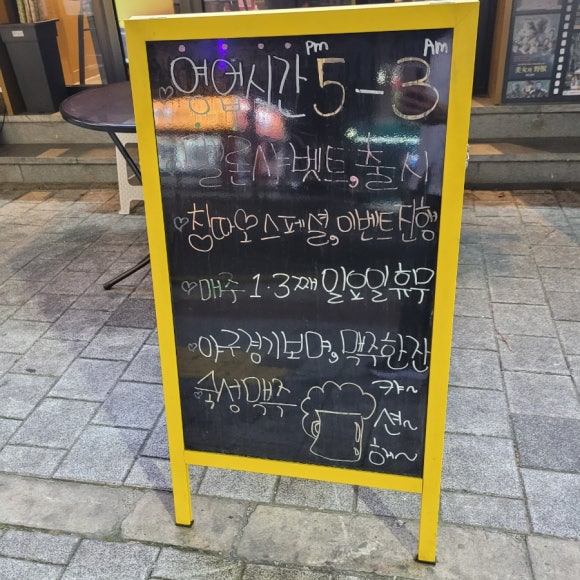 ♡영업시간 PM 5 - 3 AM
멜론샤벳트,출시
♡칭따오 스페셜,이벤트진행
♡매주 1·3째 일요일휴무
♡야구경기보며,맥주한잔
♡숙성맥주
캬~
션~
해~